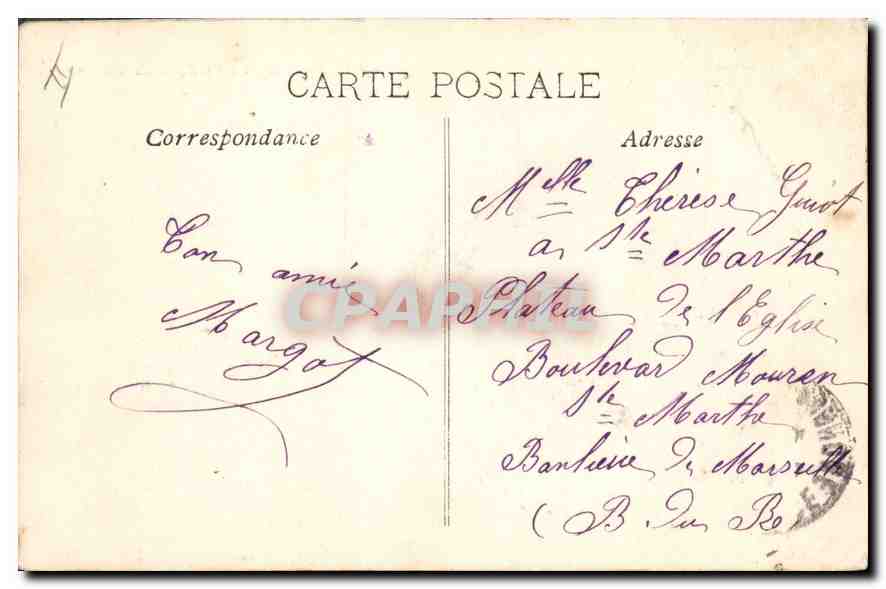 CARTE POSTALE
Correspondance
Adresse
Ton amie
Margot
Mlle Thérèse Guiot
a Ste Marthe
Plateau de l'Eglise
Boulevard Mouren
Ste Marthe
Banlieue de Marseille
( B du R
CPAPHIL